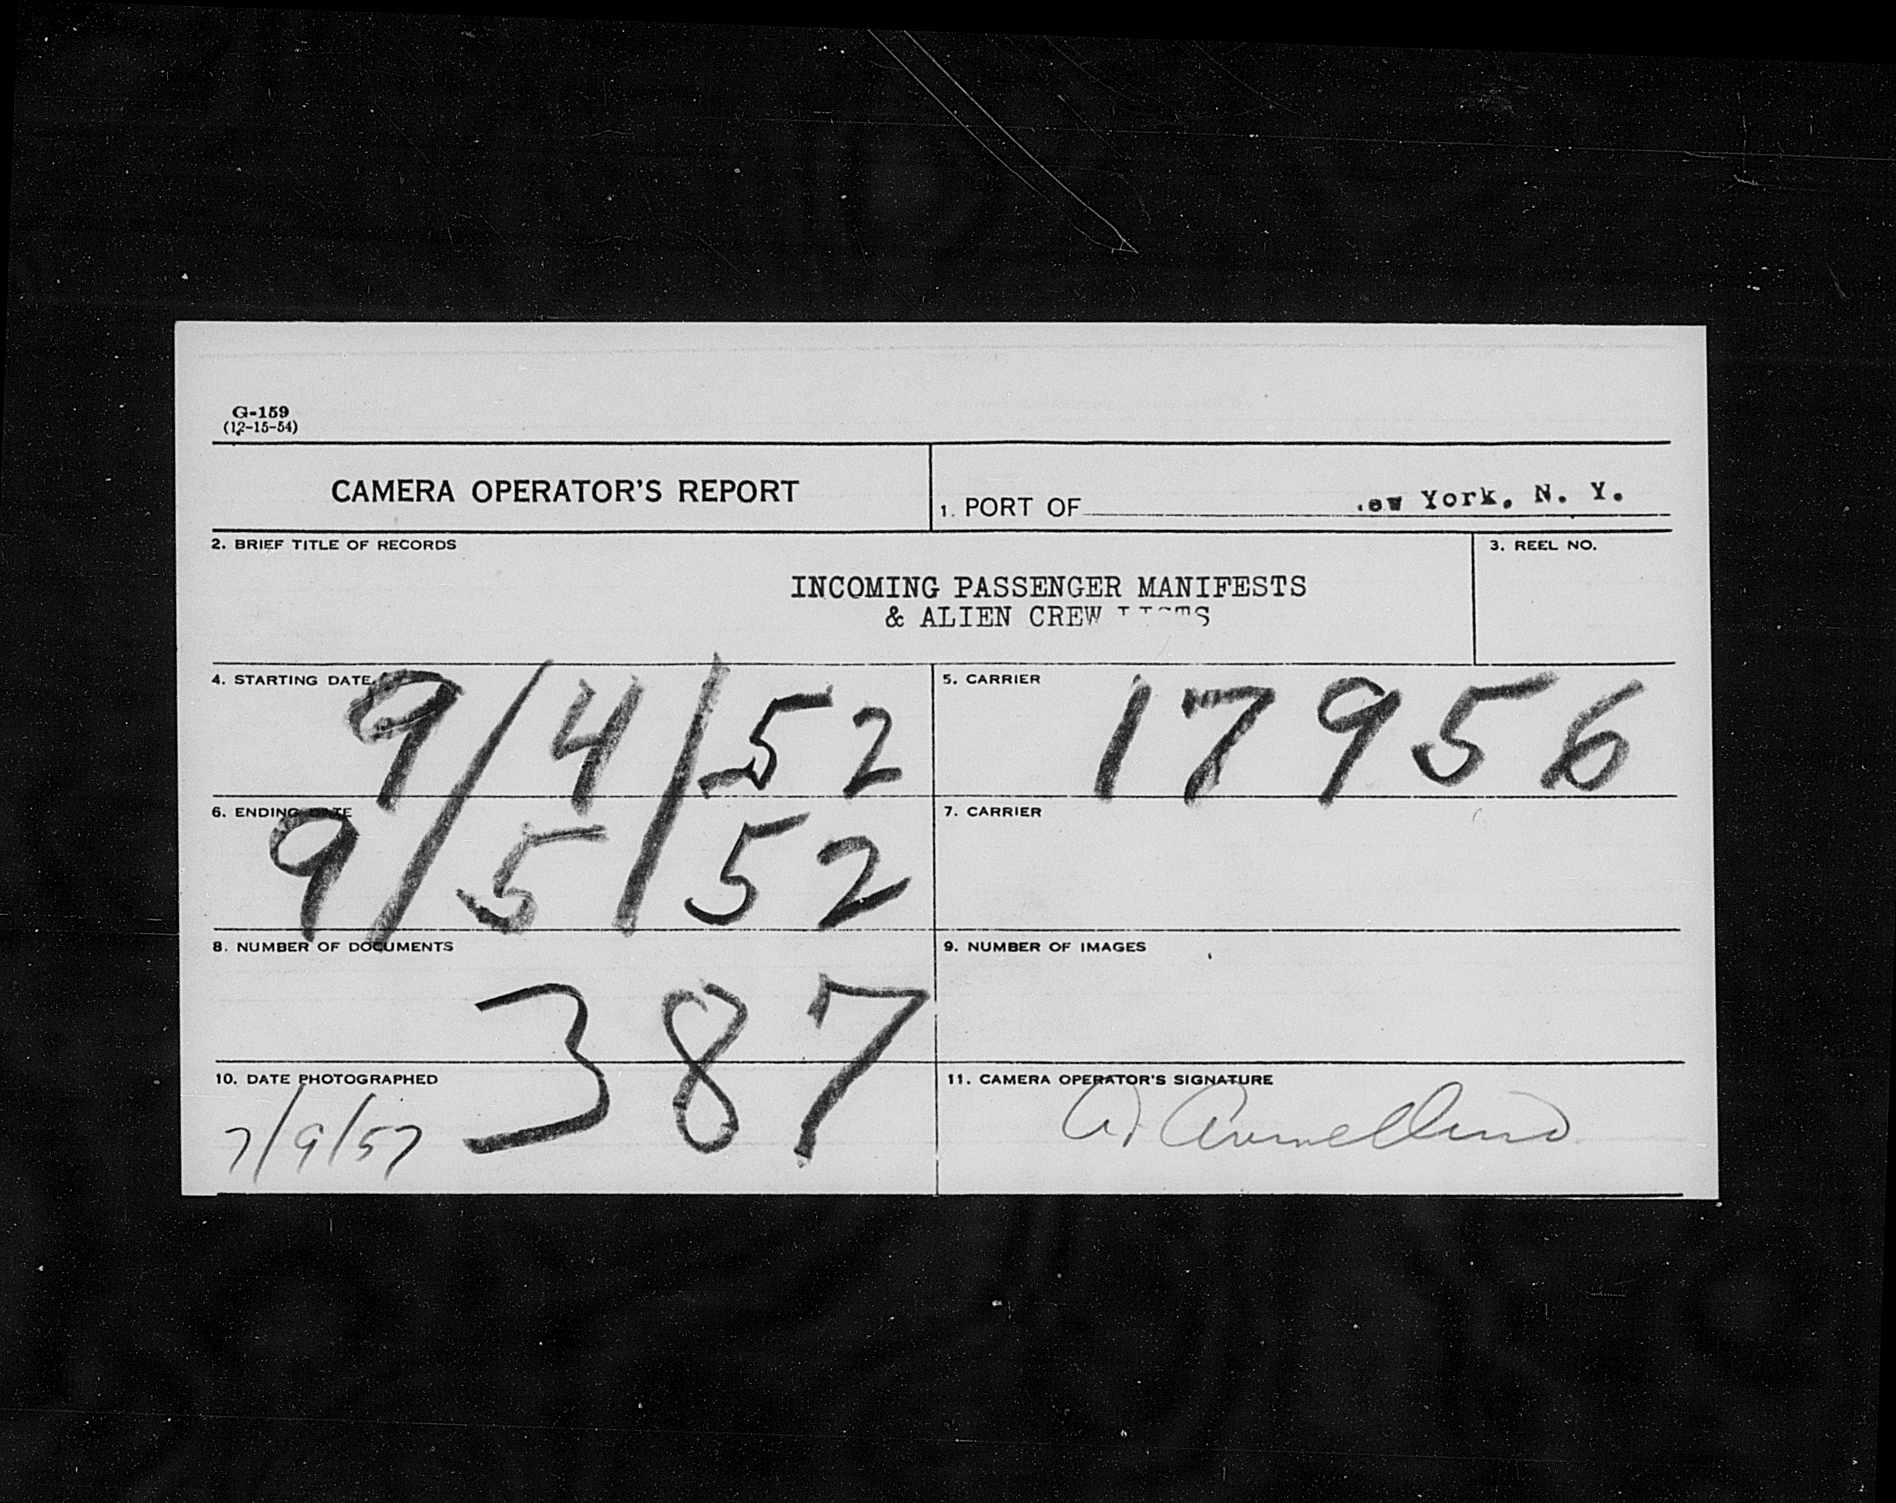 G-159
(12-15-54)
CAMERA OPERATOR'S REPORT
1. PORT OF ew York, N. Y.
2. BRIEF TITLE OF RECORDS
3. REEL NO.
INCOMING PASSENGER MANIFESTS
& ALIEN CREW LISTS
4. STARTING DATE
9/4/52
5. CARRIER
17956
6. ENDING DATE
9/5/52
7. CARRIER
8. NUMBER OF DOCUMENTS
387
9. NUMBER OF IMAGES
10. DATE PHOTOGRAPHED
7/9/57
11. CAMERA OPERATOR'S SIGNATURE